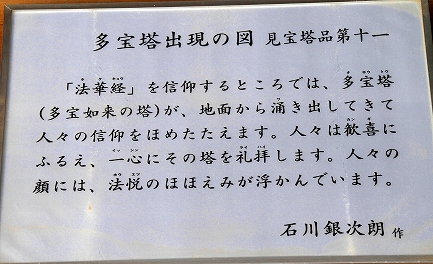 多宝塔出現の図 見宝塔品第十一
「法華経」を信仰するところでは、多宝塔
(多宝如来の塔)が、地面から涌き出してきて
人々の信仰をほめたたえます。人々は歓喜に
ふるえ、一心にその塔を礼拝します。人々の
顔には、法悦のほほえみが浮かんでいます。
石川銀次朗 作